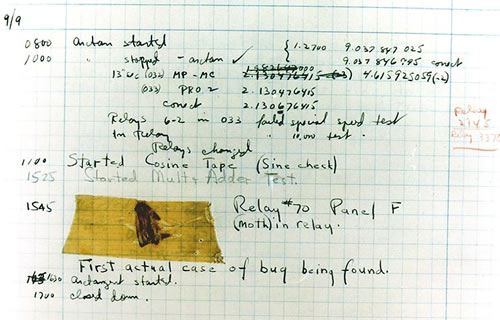 9/9
0800 antan started
1000 " stopped - antan ✓ { 1.2700 9.037 847 025
9.037 846 995 correct
13"uc (032) MP - MC 2.130476415 (-3) 4.615925059(-2)
(033) PRO 2 2.130476415
correct 2.130676415
Relays 6-2 in 033 failed special speed test
in relay " 10,000 test .
Relays changed
Relay
2145
Relay 3370
1100 Started Cosine Tape (Sine check)
1525 Started Mult + Adder Test.
1545 Relay #70 Panel F
(moth) in relay.
First actual case of bug being found.
1630 antangent started.
1700 closed down.